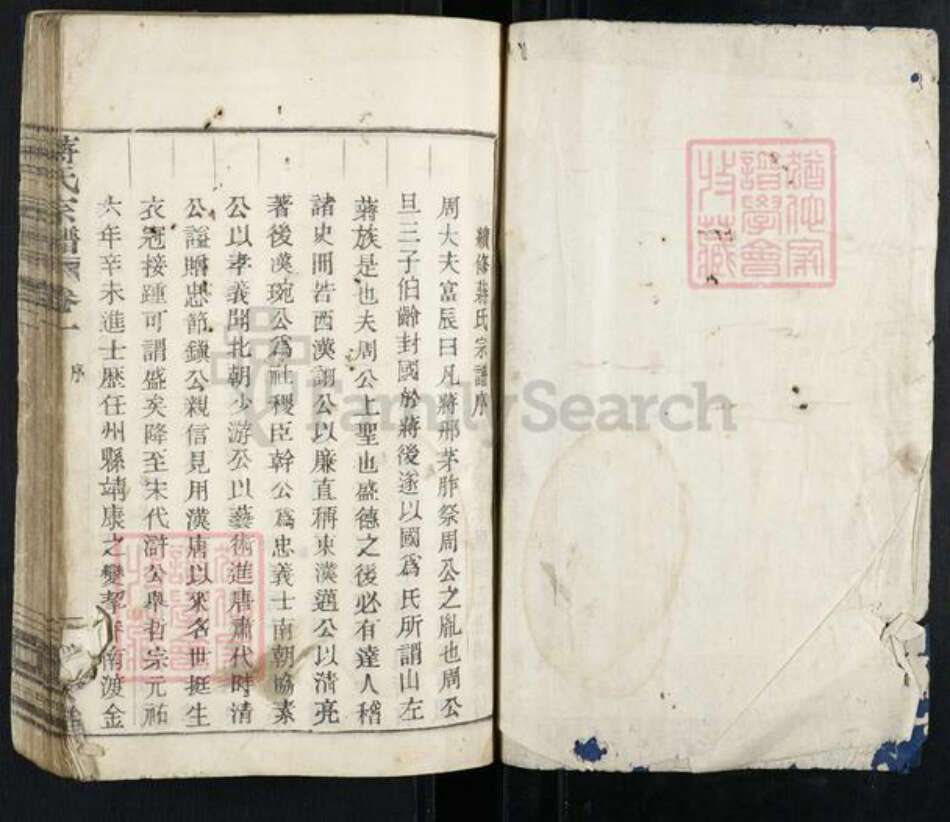 續修蔣氏宗譜序
周大夫富辰曰凡蔣邢茅胙祭周公之胤也周公
旦三子伯齡封國於蔣後遂以國爲氏所謂山左
蔣族是也夫周公上聖也盛德之後必有達人稽
諸史冊若西漢詡公以廉直稱東漢邁公以清亮
著後漢琬公爲社稷臣幹公爲忠義士南朝協素
公以孝義聞北朝少游公以藝術進唐肅代時清
公諡贈忠節鎭公親信見用漢唐以來名世挺生
衣冠接踵可謂盛矣降至宋代滸公舉哲宗元祐
六年辛未進士歷任州縣靖康之變挈眷南渡金
蔣氏宗譜 卷一
序
FamilySearch